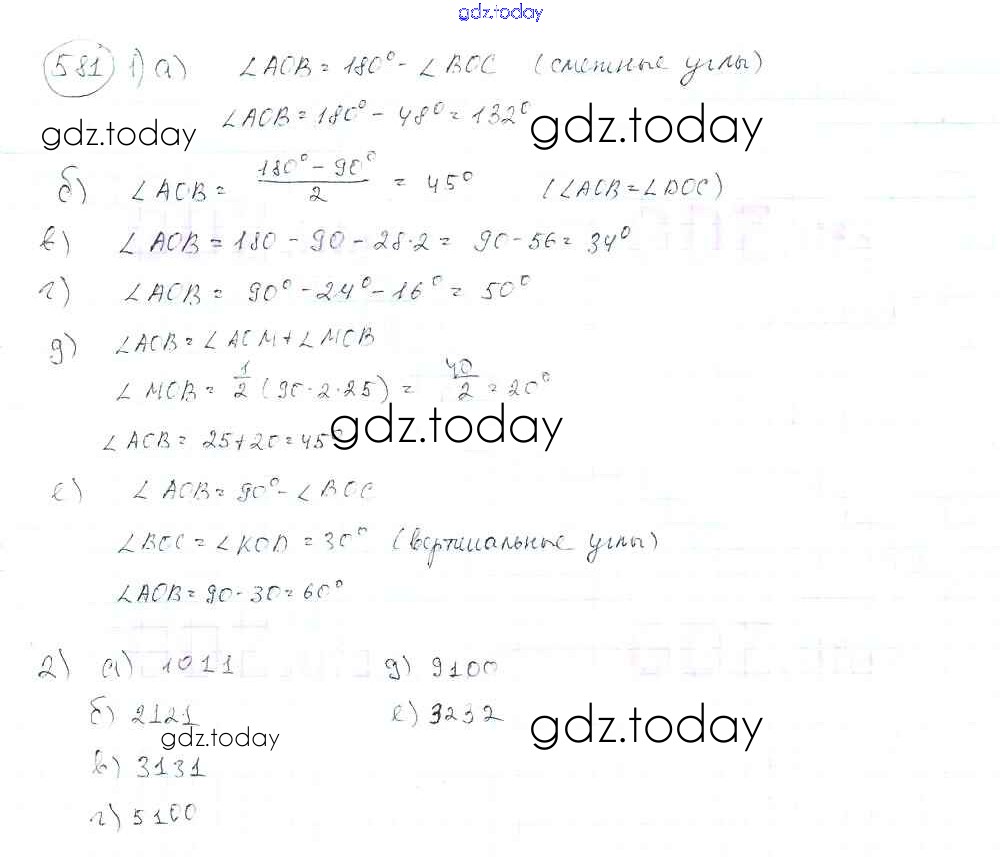 gdz.today
581 1) а) ∠AOB = 180° - ∠BOC (смежные углы)
∠AOB = 180° - 48° = 132°
gdz.today gdz.today
б) ∠AOB = (180° - 90°)/2 = 45° (∠AOB = ∠DOC)
в) ∠AOB = 180 - 90 - 28·2 = 90 - 56 = 34°
г) ∠AOB = 90° - 24° - 16° = 50°
д) ∠AOB = ∠AOM + ∠MOB
∠MOB = 1/2 (90 - 2·25) = 40/2 = 20°
∠AOB = 25 + 20 = 45°
gdz.today
е) ∠AOB = 90° - ∠BOC
∠BOC = ∠KOD = 30° (вертикальные углы)
∠AOB = 90 - 30 = 60°
2) а) 1011 д) 9100
б) 2121 е) 3232
gdz.today gdz.today
в) 3131
г) 5100